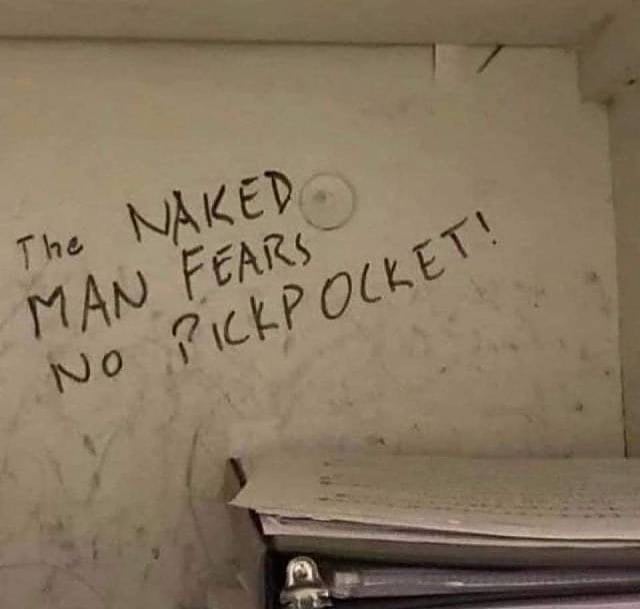 The NAKED
MAN FEARS
NO PICKPOCKET!